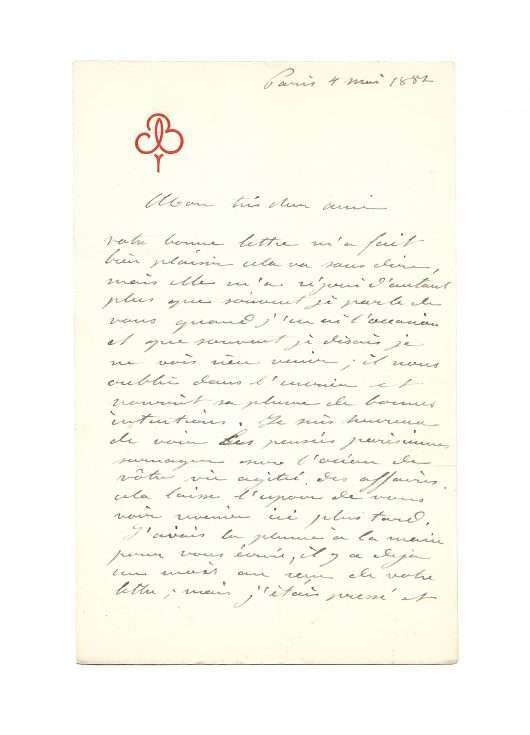 Paris 4 mai 1882
Mon très cher ami
votre bonne lettre m'a fait
bien plaisir cela va sans dire,
mais elle m'a réjoui d'autant
plus que souvent je parle de
vous quand j'en ai l'occasion
et que souvent je disais je
ne vois rien venir ; il nous
oublie dans l' et
nourrit sa plume de bonnes
intentions. Je suis heureux
de voir les pensées parisiennes
surnager sur l'océan de
vôtre vie agitée des affaires.
cela laisse l'espoir de vous
voir revenir ici plus tard.
J'avais la plume à la main
pour vous écrire, il y a deja
un mois au reçu de votre
lettre ; mais j'étais pressé et